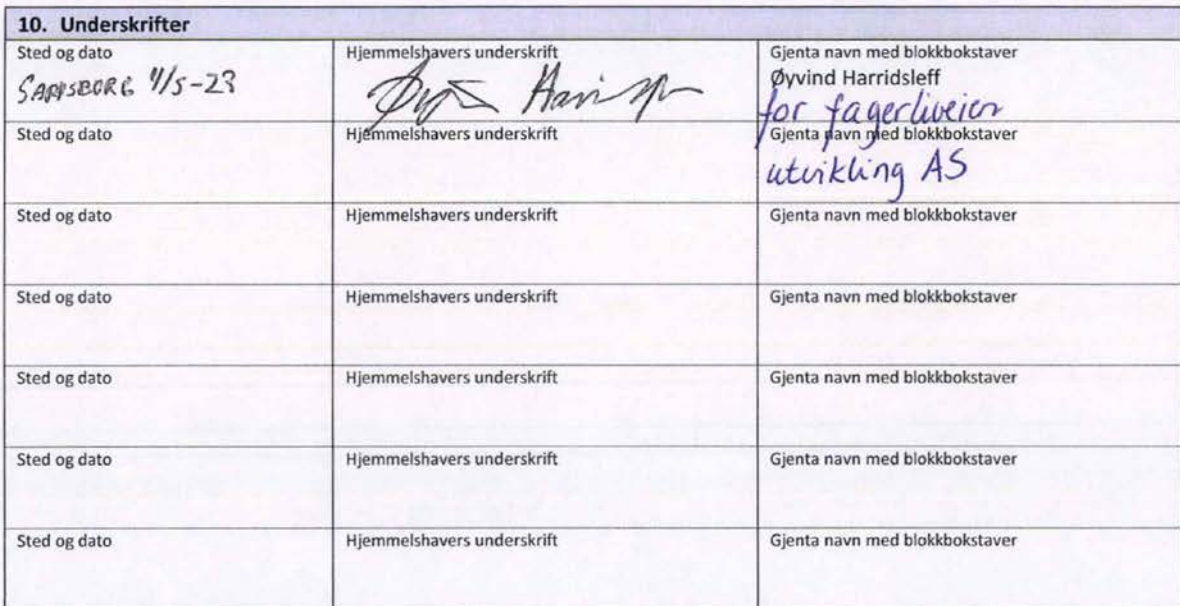 10. Underskrifter
Sted og dato
Hjemmelshavers underskrift
Gjenta navn med blokkbokstaver
SARPSBORG 4/5-23
Øyvind Harridsleff
for fagerliveien
Sted og dato
Hjemmelshavers underskrift
Gjenta navn med blokkbokstaver
utvikling AS
Sted og dato
Hjemmelshavers underskrift
Gjenta navn med blokkbokstaver
Sted og dato
Hjemmelshavers underskrift
Gjenta navn med blokkbokstaver
Sted og dato
Hjemmelshavers underskrift
Gjenta navn med blokkbokstaver
Sted og dato
Hjemmelshavers underskrift
Gjenta navn med blokkbokstaver
Sted og dato
Hjemmelshavers underskrift
Gjenta navn med blokkbokstaver